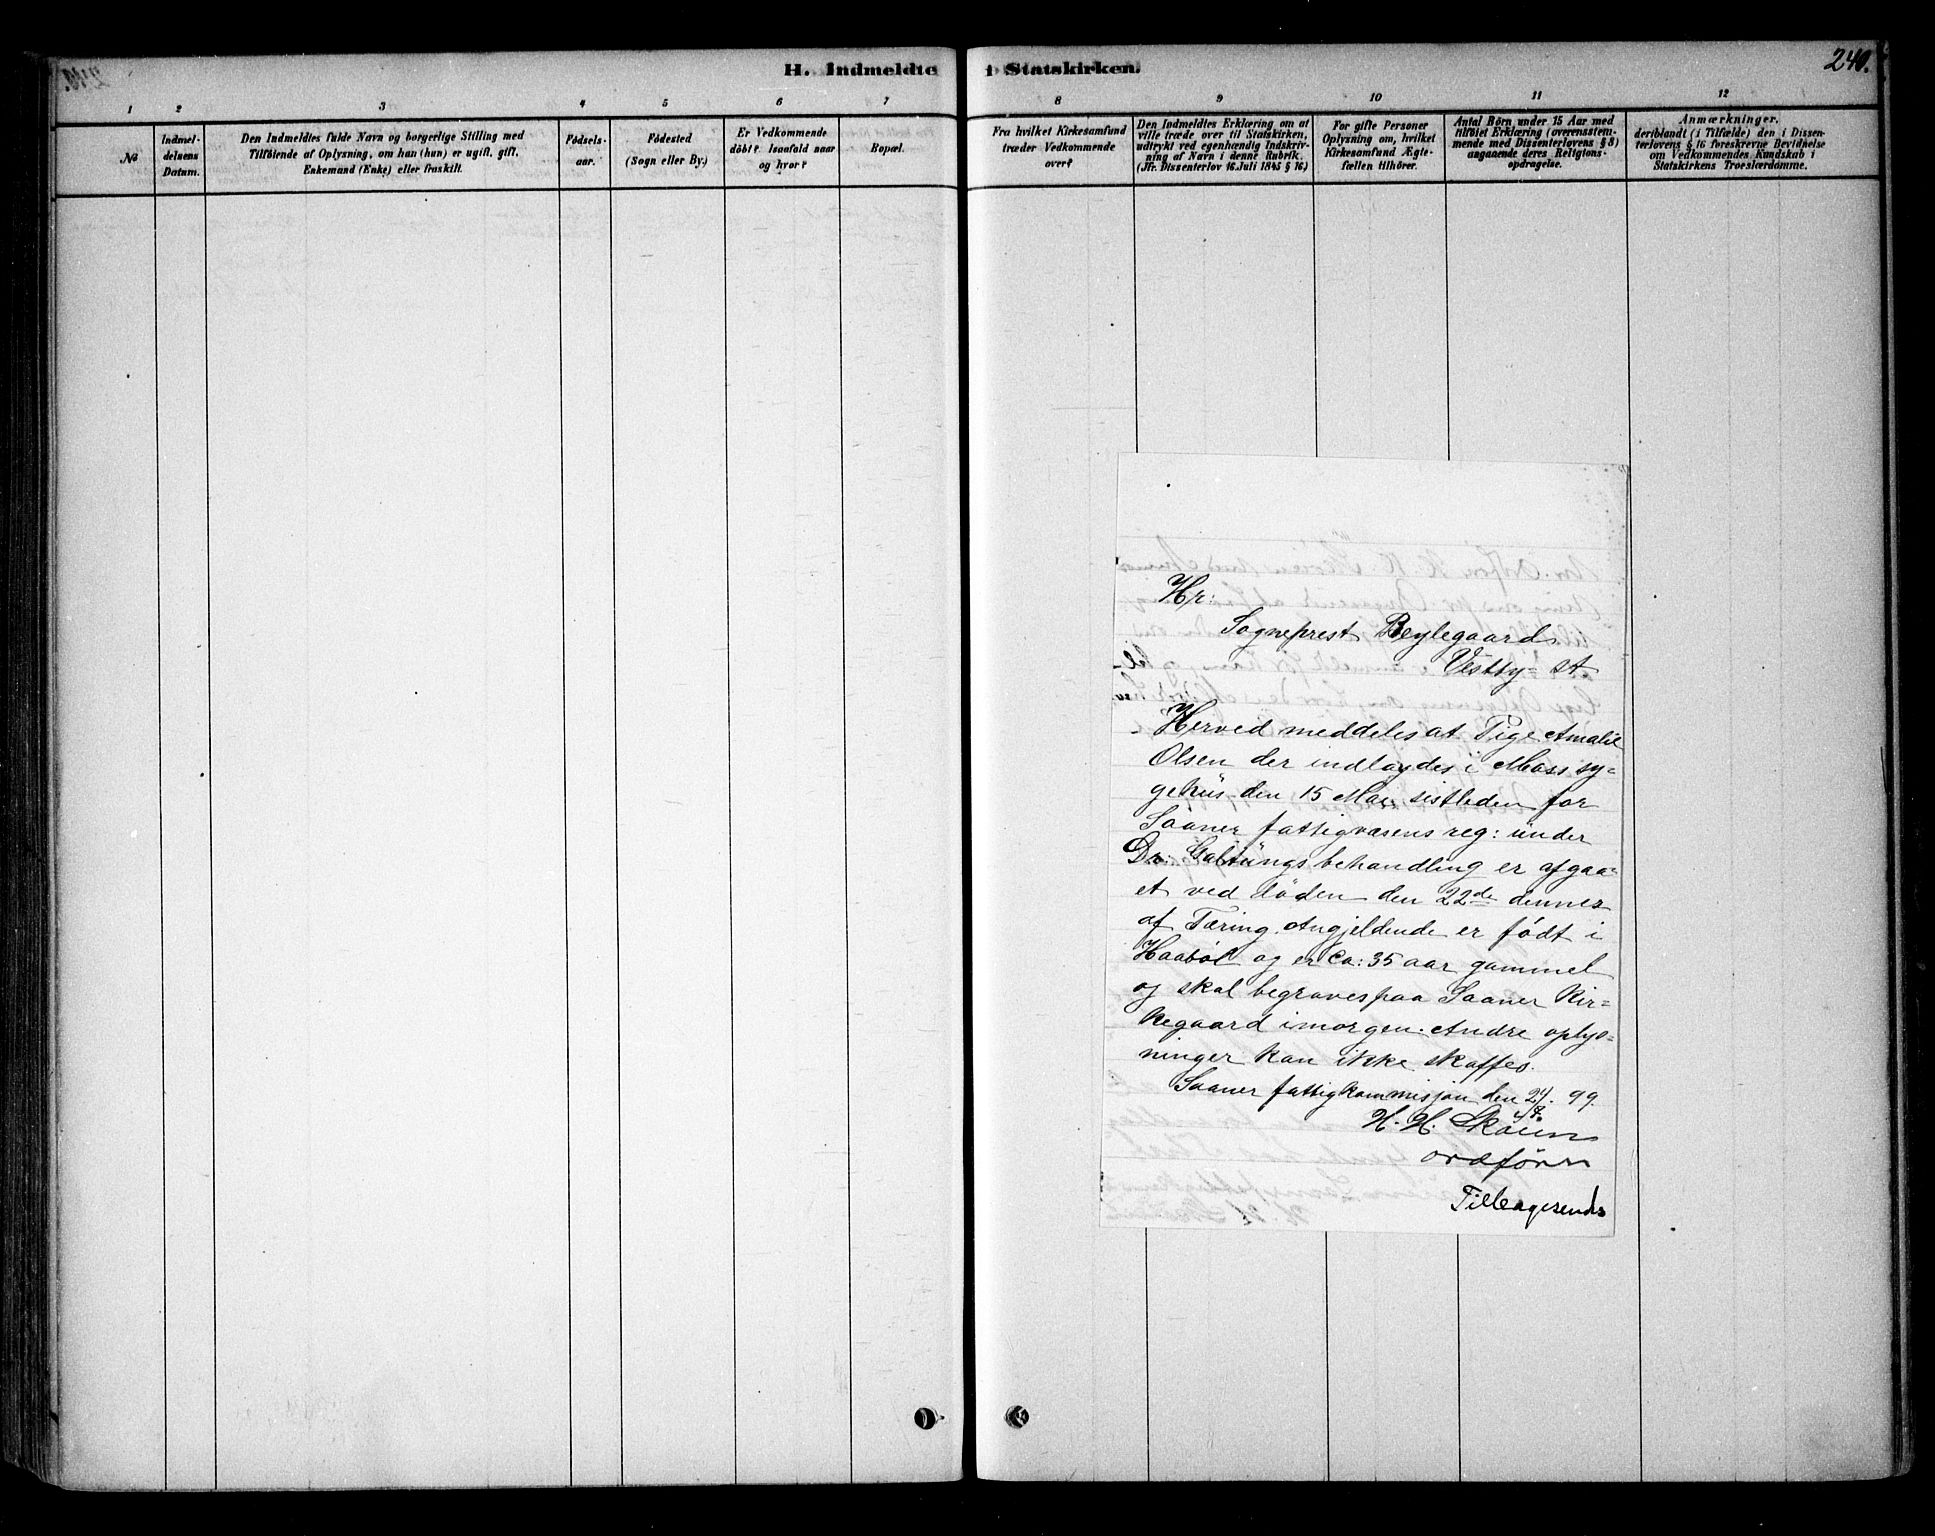 H. Indmeldte i Statskirken.
240.
1 2 3 4 5 6 7 8 9 10 11 12
No
Indmel-
delsens
Datum.
Den Indmeldtes fulde Navn og borgerlige Stilling med
Tilföiende af Oplysning, om han (hun) er ugift, gift,
Enkemand (Enke) eller fraskilt.
Födsels-
aar.
Födested
(Sogn eller By.)
Er Vedkommende
döbt? Isaafald naar
og hvor?
Bopæl.
Fra hvilket Kirkesamfund
træder Vedkommende
over?
Den Indmeldtes Erklæring om at
ville træde over til Statskirken,
udtrykt ved egenhændig Indskriv-
ning af Navn i denne Rubrik.
(Jfr. Dissenterlov 16. Juli 1845 § 16.)
For gifte Personer
Oplysning om, hvilket
Kirkesamfund Ægte-
fællen tilhörer.
Antal Börn under 15 Aar med
tilföiet Erklæring (overensstem-
mende med Dissenterlovens § 3)
angaaende deres Religions-
opdragelse.
Anmærkninger,
deriblandt (i Tilfælde) den i Dissen-
terlovens § 16 foreskrevne Bevidnelse
om Vedkommendes Kundskab i
Statskirkens Troeslærdomme.
Hr:
Sogneprest Beylegaard
Vestby = st
Herved meddeles at Pige Amalie
Olsen der indlagdes i Moss sy=
gehus den 15 Mai sistleden for
Saaner fattigvæsens reg: under
Dr: Galtungs behandling er afgaa=
et ved døden den 22de dennes
af Tæring. Angjeldende er født i
Haabøl og er ca: 35 aar gammel
og skal begraves paa Saaner Kir=
kegaard imorgen. Andre oplys=
ninger kan ikke skaffes.
Saaner fattigkommisjon den 24/8. 99.
H. H. Skoien
ordfører